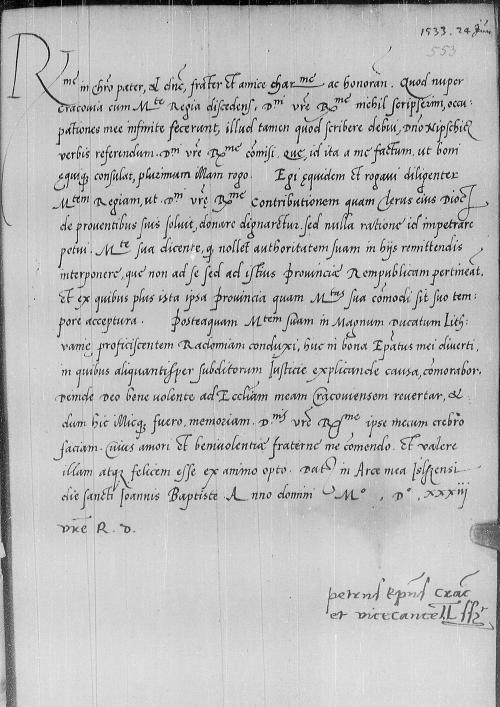 1533. 24 Jun
553
Rme in chro pater, et dne, frater et amice charme ac honoran. Quod nuper
Cracovia cum Mte Regia discedens, Dni vre Rme nichil scripserim, occu-
pationes mee infinite fecerunt, illud tamen quod scribere debui, Dno Nipschicz
verbis referendum Dni vre Rme comisi, que, id ita a me factum, ut boni
ęquiqz consulat, plurimum illam rogo. Egi ęquidem et rogavi diligenter
Mtem Regiam, ut Dni vrę Rme contributionem quam clerus eius Dioc
de proventibus suis soluit, donare dignaretur, sed nulla ratione id impetrare
potui. Mte sua dicente, q nollet authoritatem suam in hijs remittendis
interponere, que non ad se sed ad istius provincię Rempublicam pertineat.
Et ex quibus plus ista ipsa provincia quam Mtas sua comodi sit suo tem-
pore acceptura. Posteaquam Mtem suam in Magnum Ducatum Lith-
vanię proficiscentem Radomiam conduxi, huc in bona Epatus mei diverti,
in quibus aliquantisper subditorum Iusticie explicande causa, comorabor.
Deinde Deo bene volente ad Eccliam meam Cracoviensem revertar, et
dum hic illicqz fuero, memoriam Dnis vre Rme ipse mecum crebro
faciam. Cuius amori et benivolentię fraterne me comendo. Et valere
illam atqz felicem esse ex animo opto. Dat in Arce mea Ilszensi
die sancti Ioannis Baptiste Anno domini Mo. Do. xxxiij
vre R. D.
petrus Epus Crac
et vicecancell ssr